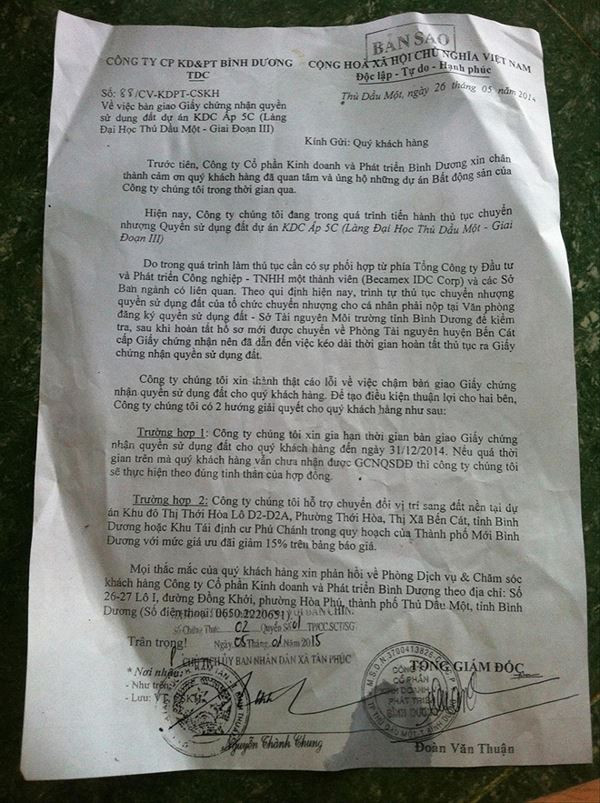 BẢN SAO
CÔNG TY CP KD&PT BÌNH DƯƠNG
TDC
CỘNG HOÀ XÃ HỘI CHỦ NGHĨA VIỆT NAM
Độc lập - Tự do - Hạnh phúc
Số: 88/CV-KDPT-CSKH
Thủ Dầu Một, ngày 26 tháng 05 năm 2014
Về việc bàn giao Giấy chứng nhận quyền
sử dụng đất dự án KDC Ấp 5C (Làng
Đại Học Thủ Dầu Một - Giai Đoạn III)
Kính Gửi: Quý khách hàng
Trước tiên, Công ty Cổ phần Kinh doanh và Phát triển Bình Dương xin chân
thành cảm ơn quý khách hàng đã quan tâm và ủng hộ những dự án Bất động sản của
Công ty chúng tôi trong thời gian qua.
Hiện nay, Công ty chúng tôi đang trong quá trình tiến hành thủ tục chuyển
nhượng Quyền sử dụng đất dự án KDC Ấp 5C (Làng Đại Học Thủ Dầu Một - Giai
Đoạn III)
Do trong quá trình làm thủ tục cần có sự phối hợp từ phía Tổng Công ty Đầu tư
và Phát triển Công nghiệp - TNHH một thành viên (Becamex IDC Corp) và các Sở
Ban ngành có liên quan. Theo qui định hiện nay, trình tự thủ tục chuyển nhượng
quyền sử dụng đất của tổ chức chuyển nhượng cho cá nhân phải nộp tại Văn phòng
đăng ký quyền sử dụng đất - Sở Tài nguyên Môi trường tỉnh Bình Dương để kiểm
tra, sau khi hoàn tất hồ sơ mới được chuyển về Phòng Tài nguyên huyện Bến Cát
cấp Giấy chứng nhận nên đã dẫn đến việc kéo dài thời gian hoàn tất thủ tục ra Giấy
chứng nhận quyền sử dụng đất.
Công ty chúng tôi xin thành thật cáo lỗi về việc chậm bàn giao Giấy chứng
nhận quyền sử dụng đất cho quý khách hàng. Để tạo điều kiện thuận lợi cho hai bên,
Công ty chúng tôi có 2 hướng giải quyết cho quý khách hàng như sau:
Trường hợp 1: Công ty chúng tôi xin gia hạn thời gian bàn giao Giấy chứng
nhận quyền sử dụng đất cho quý khách hàng đến ngày 31/12/2014. Nếu quá thời
gian trên mà quý khách hàng vẫn chưa nhận được GCNQSDĐ thì công ty chúng tôi
sẽ thực hiện theo đúng tinh thần của hợp đồng.
Trường hợp 2: Công ty chúng tôi hỗ trợ chuyển đổi vị trí sang đất nền tại dự
án Khu đô Thị Thới Hòa Lô D2-D2A, Phường Thới Hòa, Thị Xã Bến Cát, tỉnh Bình
Dương hoặc Khu Tái định cư Phú Chánh trong quy hoạch của Thành phố Mới Bình
Dương với mức giá ưu đãi giảm 15% trên bảng báo giá.
Mọi thắc mắc của quý khách hàng xin phản hồi về Phòng Dịch vụ & Chăm sóc
khách hàng Công ty Cổ phần Kinh doanh và Phát triển Bình Dương theo địa chỉ: Số
26-27 Lô I, đường Đồng Khởi, phường Hòa Phú, thành phố Thủ Dầu Một, tỉnh Bình
Dương (Số điện thoại: 0650.2220651).
Số Chứng Thực: 02 Quyển Số 01 TPCC.SCT/SG
Trân trọng!
Ngày 05 Tháng 01 Năm 2015
CHỦ TỊCH ỦY BAN NHÂN DÂN XÃ TÂN PHÚC
TỔNG GIÁM ĐỐC
* Nơi nhận:
- Như trên
- Lưu: VT,
M.S.D.N:3700413826
CÔNG TY
CỔ PHẦN
KINH DOANH &
PHÁT TRIỂN
BÌNH DƯƠNG
Nguyễn Thành Chung
Đoàn Văn Thuận